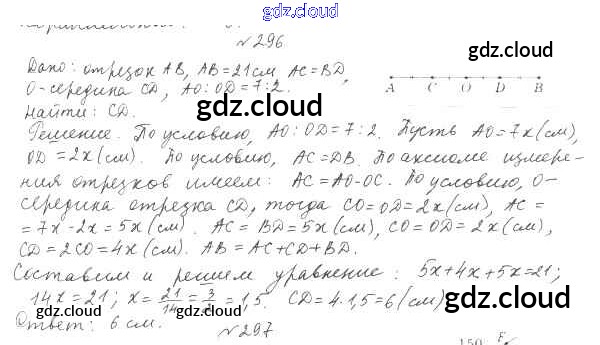 gdz.cloud
№296
gdz.cloud
Дано: отрезок AB, AB=21см AC=BD,
O-середина CD, AO:OD=7:2.
A C O D B
Найти: CD.
gdz.cloud
gdz.cloud
Решение. По условию, AO:OD=7:2. Пусть AO=7x(см),
OD=2x(см). По условию, AC=DB. По аксиоме измере-
ния отрезков имеем: AC=AO-OC. По условию, O-
середина отрезка CD, тогда CO=OD=2x(см), AC=
gdz.cloud
gdz.cloud
=7x-2x=5x(см). AC=BD=5x(см), CO=OD=2x(см),
CD=2CO=4x(см). AB=AC+CD+BD.
Составим и решим уравнение: 5x+4x+5x=21;
14x=21; x=21/14=3/2=1,5. CD=4·1,5=6(см)
gdz.cloud
gdz.cloud
Ответ: 6 см.
№297
150 F